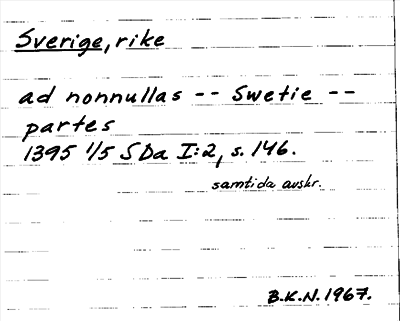 Sverige, rike
ad nonnullas -- Swetie --
partes
1395 1/5 SDa I:2, s. 146.
samtida avskr.
B.K.N. 1967.